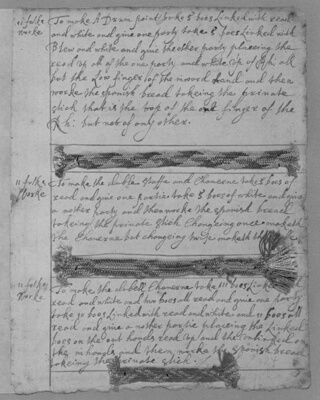 11 folkes worke
To make A Dwam point take 8 boes Linked with read
and white and giue one party take 8 boes Linked with
Blew and white and giue the other party placeing the
read up all of the one party and white up of
but the Low finger of the inword hand and then
worke the spanish bread takeing the privnate
stick that is the top of the finger of the
Rh: but not of only other.
11 folkes worke
To make the and Cheuerne take 8 boes of
read and giue one parties take 8 boes of white and giue
a nother party and then worke the spanish bread
takeing the privnate stick Changeing once maketh
the Cheuerne but changeing twise maketh the
11 folkes worke
To make the Cheuerne take 111 boes Linked
read and white and two boes all read and giue one party
take 10 boes Linked with read and white and 11 boes all
read and giue a nother partie placeing the Linked
boes on the out hands read up and the
the inhands and then worke the spanish bread
takeing the privnate stick.